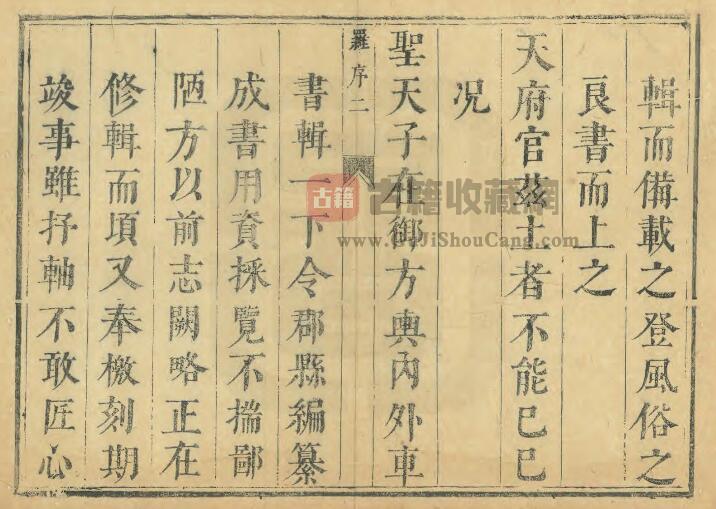 輯而備載之登風俗之
良書而上之
天府官茲土者不能已已
况
聖天子在御方輿內外車
羅序二
書輯一下令郡縣編纂
成書用資採覽不揣鄙
陋方以前志闕略正在
修輯而項又奉檄刻期
竣事雖抒軸不敢匠心
古籍 古籍收藏網
www.GuJiShouCang.com